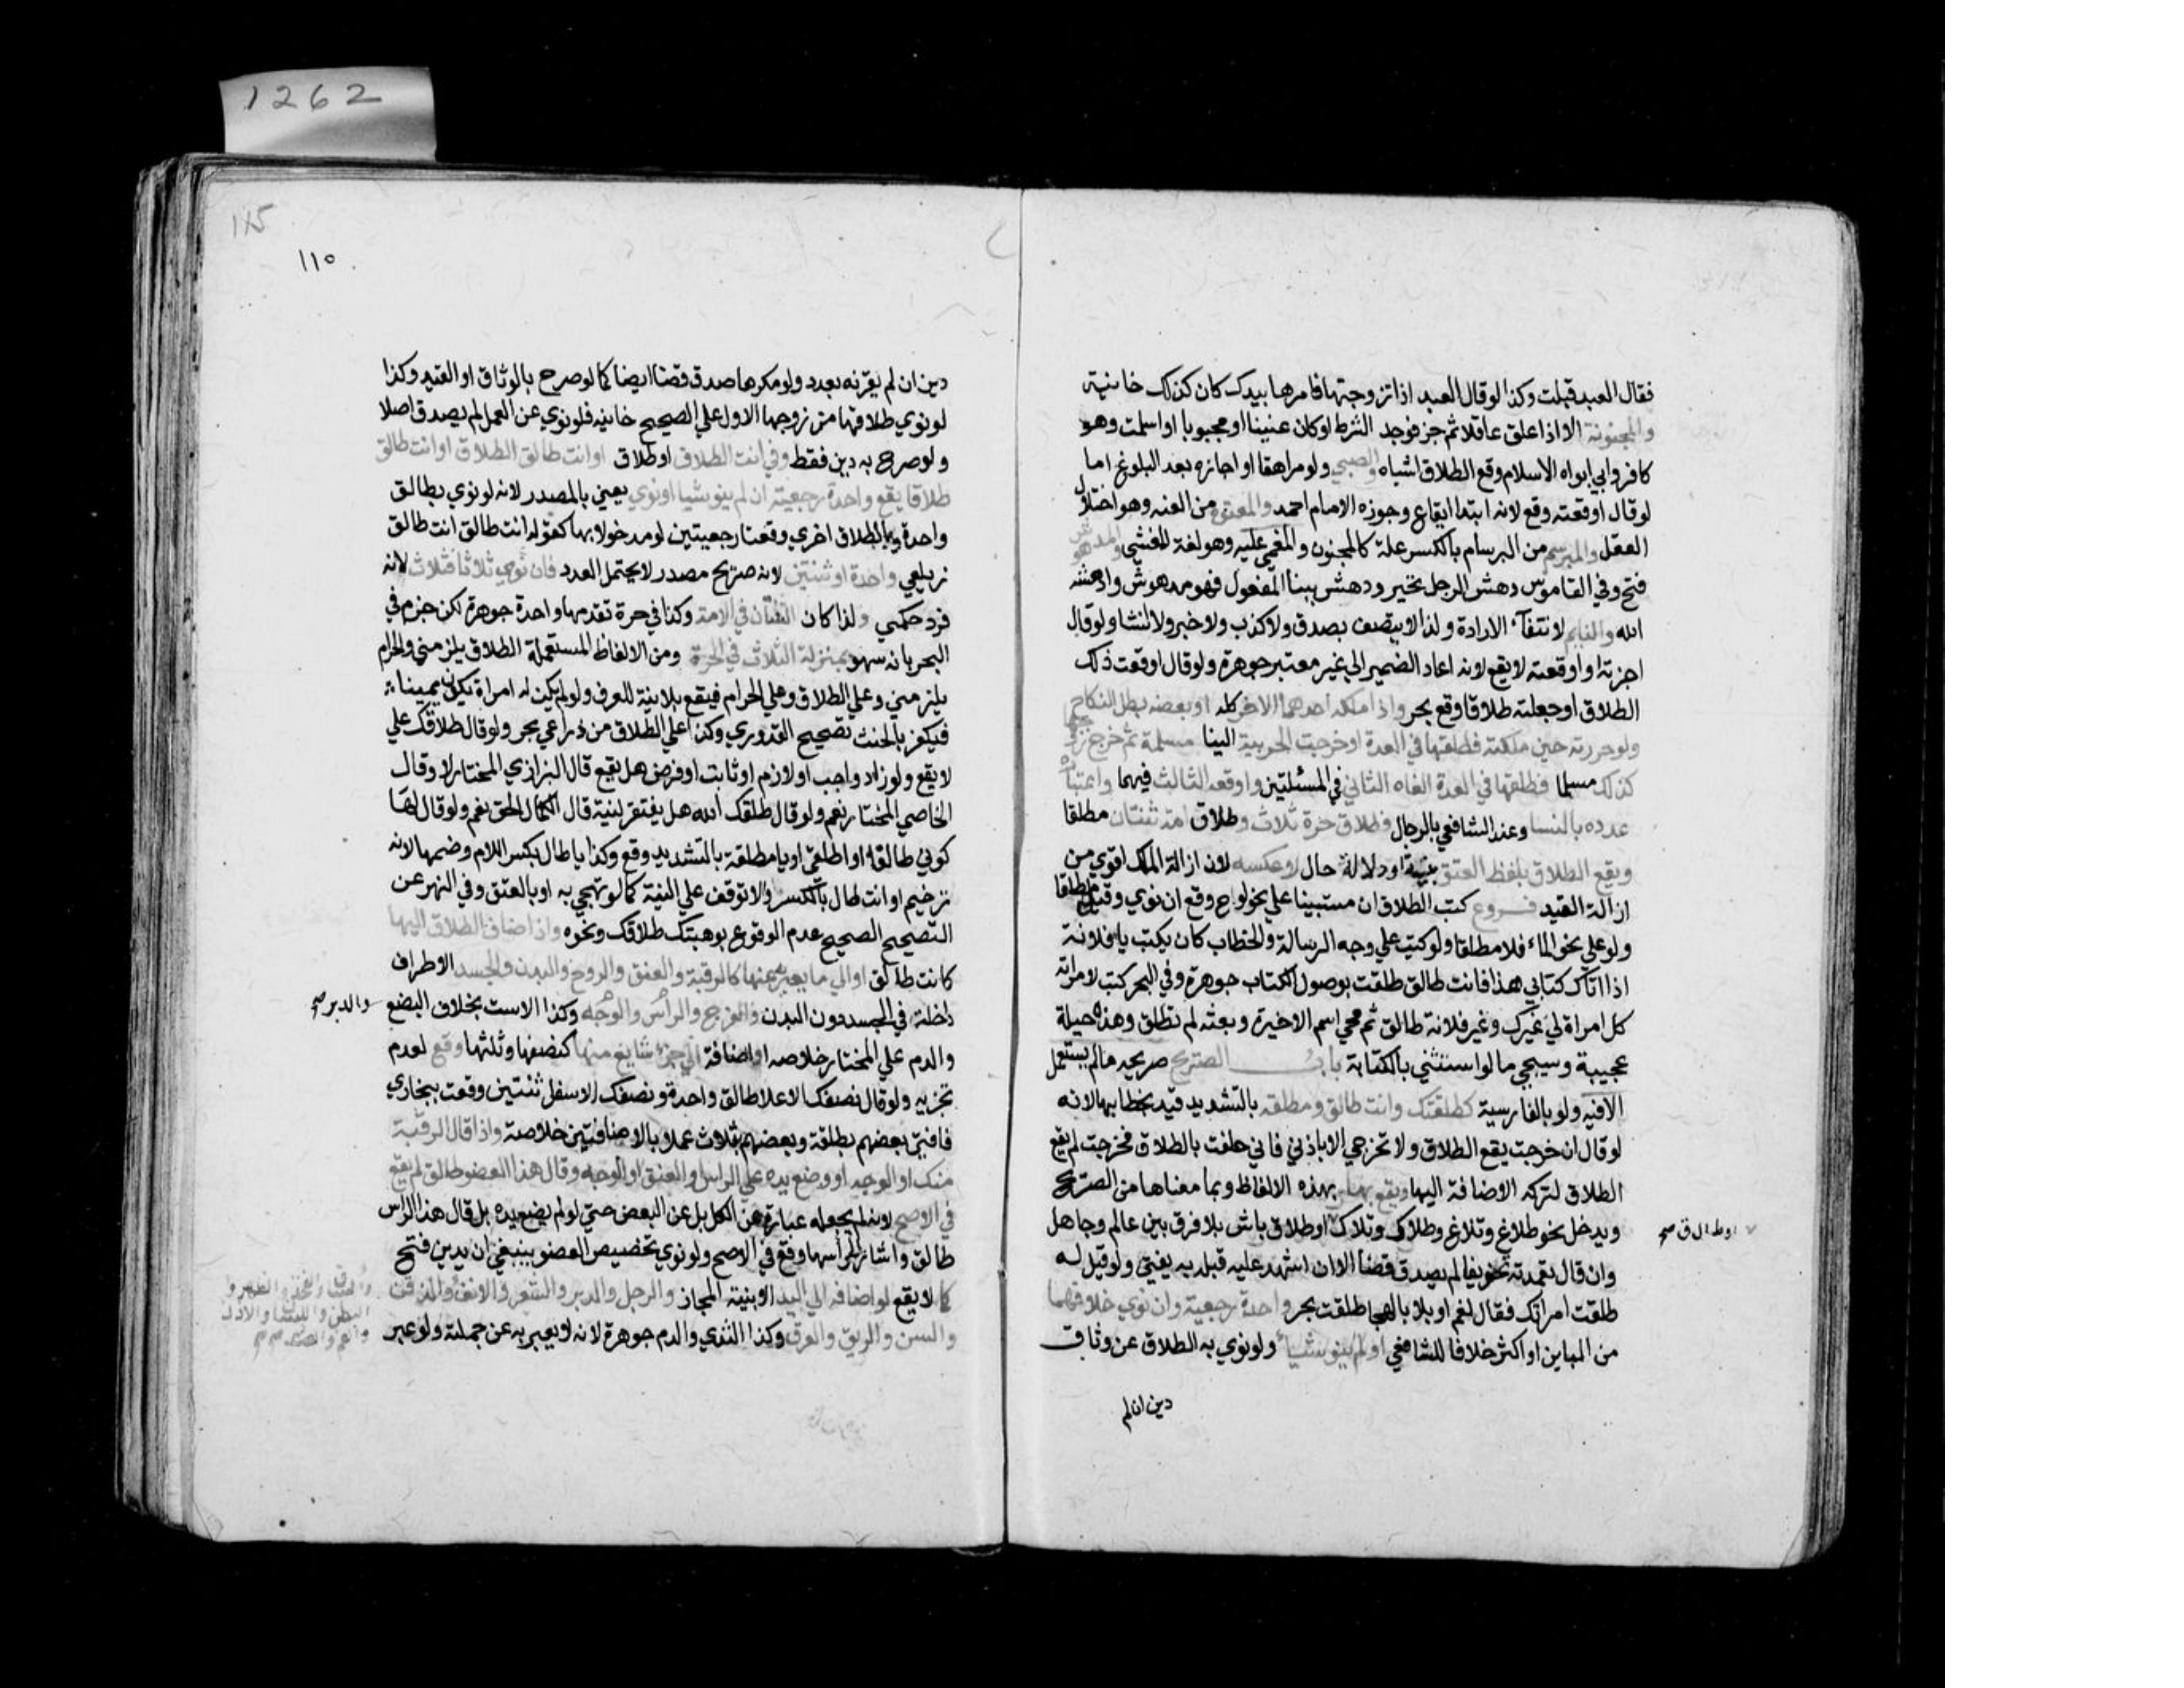 1262
فقال العبد قبلت وكذا لوقال العبد اذا تزوجتها فامرها بيدك كان كذلك خانية
والمجنونة الا اذا علق عاقلا ثم جن فوجد الشرط اوكان عنينا او مجبوبا او اسلمت وهو
كافر وابي ابواه الاسلام وقع الطلاق اشباه والصبي ولو مراهقا او اجازه بعد البلوغ اما
لوقال اوقعته وقع لانه ابتدا ايقاع وجوزه الامام احمد والمعتوه من العته وهو اختلال
العقل والمبرسم من البرسام بالكسر علة كالجنون والمغمي عليه وهو لغة المغشي والمدهوش
فتح وفي القاموس دهش الرجل تحير ودهش ببنا المفعول فهو مدهوش وادهشه
الله والنايم لانتفآء الارادة ولذا لا يتصف بصدق ولا كذب ولا خبر ولا انشا ولوقال
اجزته او اوقعته لا يقع لانه اعاد الضمير الي غير معتبر جوهرة ولوقال اوقعت ذلك
الطلاق اوجعلته طلاقا وقع بحر واذا ملك احدهما الاخر كله او بعضه بطل النكاح
ولو حررته حين ملكته فطلقها في العدة اوخرجت الحربية الينا مسلمة ثم خرج زوجها
كذلك مسلما فطلقها في العدة الغاه الثاني في المسئلتين واوقعه الثالث فيهما واعتبار
عدده بالنسا وعند الشافعي بالرجال فطلاق حرة ثلاث وطلاق امة ثنتان مطلقا
ويقع الطلاق بلفظ العتق بنية او دلالة حال لا عكسه لان ازالة الملك اقوي من
ازالة القيد فروع كتب الطلاق ان مستبينا علي نحو لوح وقع ان نوي وقيل مطلقا
ولو علي نحو الماء فلا مطلقا ولوكتب علي وجه الرسالة والخطاب كان يكتب يا فلانة
اذا اتاك كتابي هذا فانت طالق طلقت بوصول الكتاب جوهرة وفي البحر كتب لامراته
كل امراة لي غيرك وغير فلانة طالق ثم محي اسم الاخيرة وبعثه لم تطلق وهذه حيلة
عجيبة وسيجي مالو استثني بالكتابة باب الصريح صريحه مالم يستعمل
الافيه ولو بالفارسية كطلقتك وانت طالق ومطلقه بالتشديد قيد بخطابها لانه
لوقال ان خرجت يقع الطلاق ولا تخرجي الا باذني فاني حلفت بالطلاق فخرجت لم يقع
الطلاق لتركه الاضافة اليها ويقع بها بهذه الالفاظ وبما معناها من الصريح
ويدخل نحو طلاغ وتلاغ وطلاك وتلاك اوطلاق باش بلا فرق بين عالم وجاهل
اوط ال ق صح
وان قال تعمدته تخويفا لم يصدق قضا الا ان اشهد عليه قبله به يفتي ولوقيل له
طلقت امراتك فقال نعم او بلا بالهجا طلقت بحر واحدة رجعية وان نوي خلافهما
من المباين او اكثر خلافا للشافعي او لم ينو شيأ ولونوي به الطلاق عن وثاق
دين ان لم
115
١١٥
دين ان لم يقرنه بعدد ولو مكرها صدق قضا ايضا كما لوصرح بالوثاق او القيد وكذا
لونوي طلاقها من زوجها الاول علي الصحيح خانيه فلونوي عن العمل لم يصدق اصلا
ولو صرح به دين فقط وفي انت الطلاق اوطلاق اوانت طالق الطلاق اوانت طالق
طلاقا يقع واحدة رجعية ان لم ينو شيا اونوي يعني بالمصدر لانه لونوي بطالق
واحدة وبالطلاق اخري وقعتا رجعيتين لو مدخولا بها كقوله انت طالق انت طالق
زيلعي واحدة او ثنتين لانه صريح مصدر لا يحتمل العدد فان نوي ثلاثا فثلاث لانه
فرد حكمي ولذا كان الثنتان في الامة وكذا في حرة تقدمها واحدة جوهرة لكن جزم في
البحر بانه سهو بمنزلة الثلاث في الحرة ومن الالفاظ المستعملة الطلاق يلزمني والحرام
يلزمني وعلي الطلاق وعلي الحرام فيقع بلا نية للعرف ولو لم يكن له امراة يكون يمينا
فيكفر بالحنث تصحيح القدوري وكذا علي الطلاق من ذراعي بحر ولوقال طلاقك علي
لا يقع ولو زاد واجب او لازم او ثابت او فرض هل يقع قال البزازي المختار لا وقال
الخاصي المختار نعم ولوقال طلقك الله هل يفتقر لنية قال الكمال الحق نعم ولوقال لها
كوني طالقا او اطلقي اويا مطلقة بالتشديد وقع وكذا يا طال بكسر اللام وضمها لانه
ترخيم اوانت طال بالكسر والا توقف علي النية كما لو تهجي به او بالعتق وفي النهر عن
التصحيح الصحيح عدم الوقوع بوهبتك طلاقك ونحوه واذا اضاف الطلاق اليها
كانت طالق اوالي ما يعبر به عنها كالرقبة والعنق والروح والبدن والجسد الاطراف
داخلة في الجسد دون البدن والفرج والرأس والوجه وكذا الاست بخلاف البضع
والدبر صح
والدم علي المختار خلاصه او اضافة الي جزء شايع منها كنصفها وثلثها وقع لعدم
تجزيه ولوقال نصفك الاعلا طالق واحدة ونصفك الاسفل ثنتين وقعت ببخاري
فافتي بعضهم بطلقة وبعضهم بثلاث عملا بالاضافتين خلاصة واذا قال الرقبة
منك او الوجه او وضع يده علي الراس او العنق او الوجه وقال هذا العضو طالق لم يقع
في الاصح لانه لم يجعله عبارة عن الكل بل عن البعض حتي لو لم يضع يده بل قال هذا الراس
طالق واشار لرأسها وقع في الاصح ولونوي تخصيص العضو ينبغي ان يدين فتح
كما لا يقع لو اضافه الي اليد الا بنية المجاز والرجل والدبر والشعر والانف والذقن
والسن والريق والعرق وكذا الثدي والدم جوهرة لانه لا يعبر به عن جملة ولو عبر